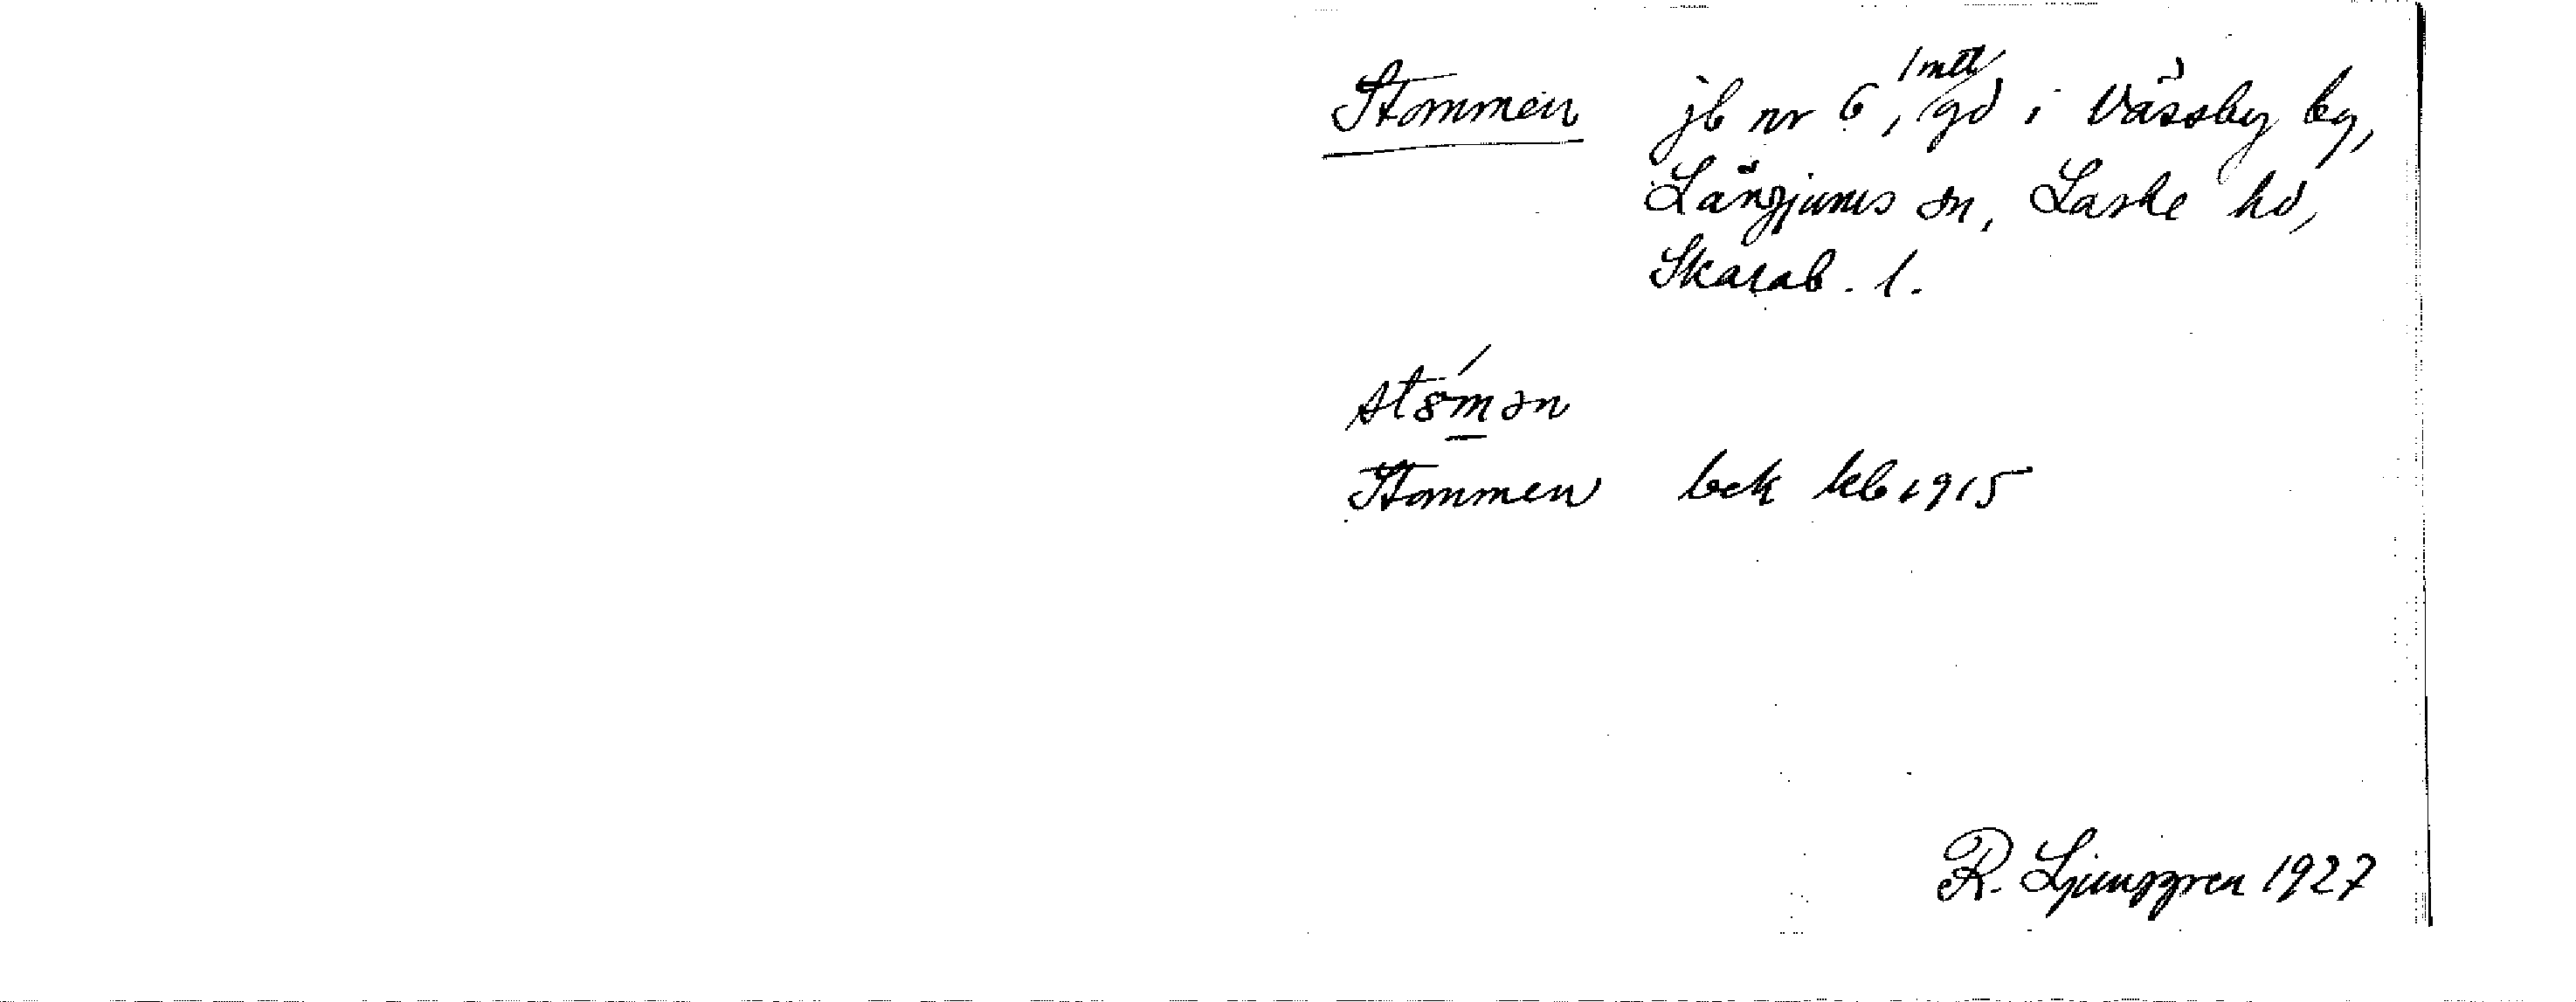 Stommen jb nr 6, 1 mtl gd i Vässby by,
Långjums sn, Laske hd,
Skarab. l.
st8́mən
Stommen bek kb 1915
R. Ljunggren 1927